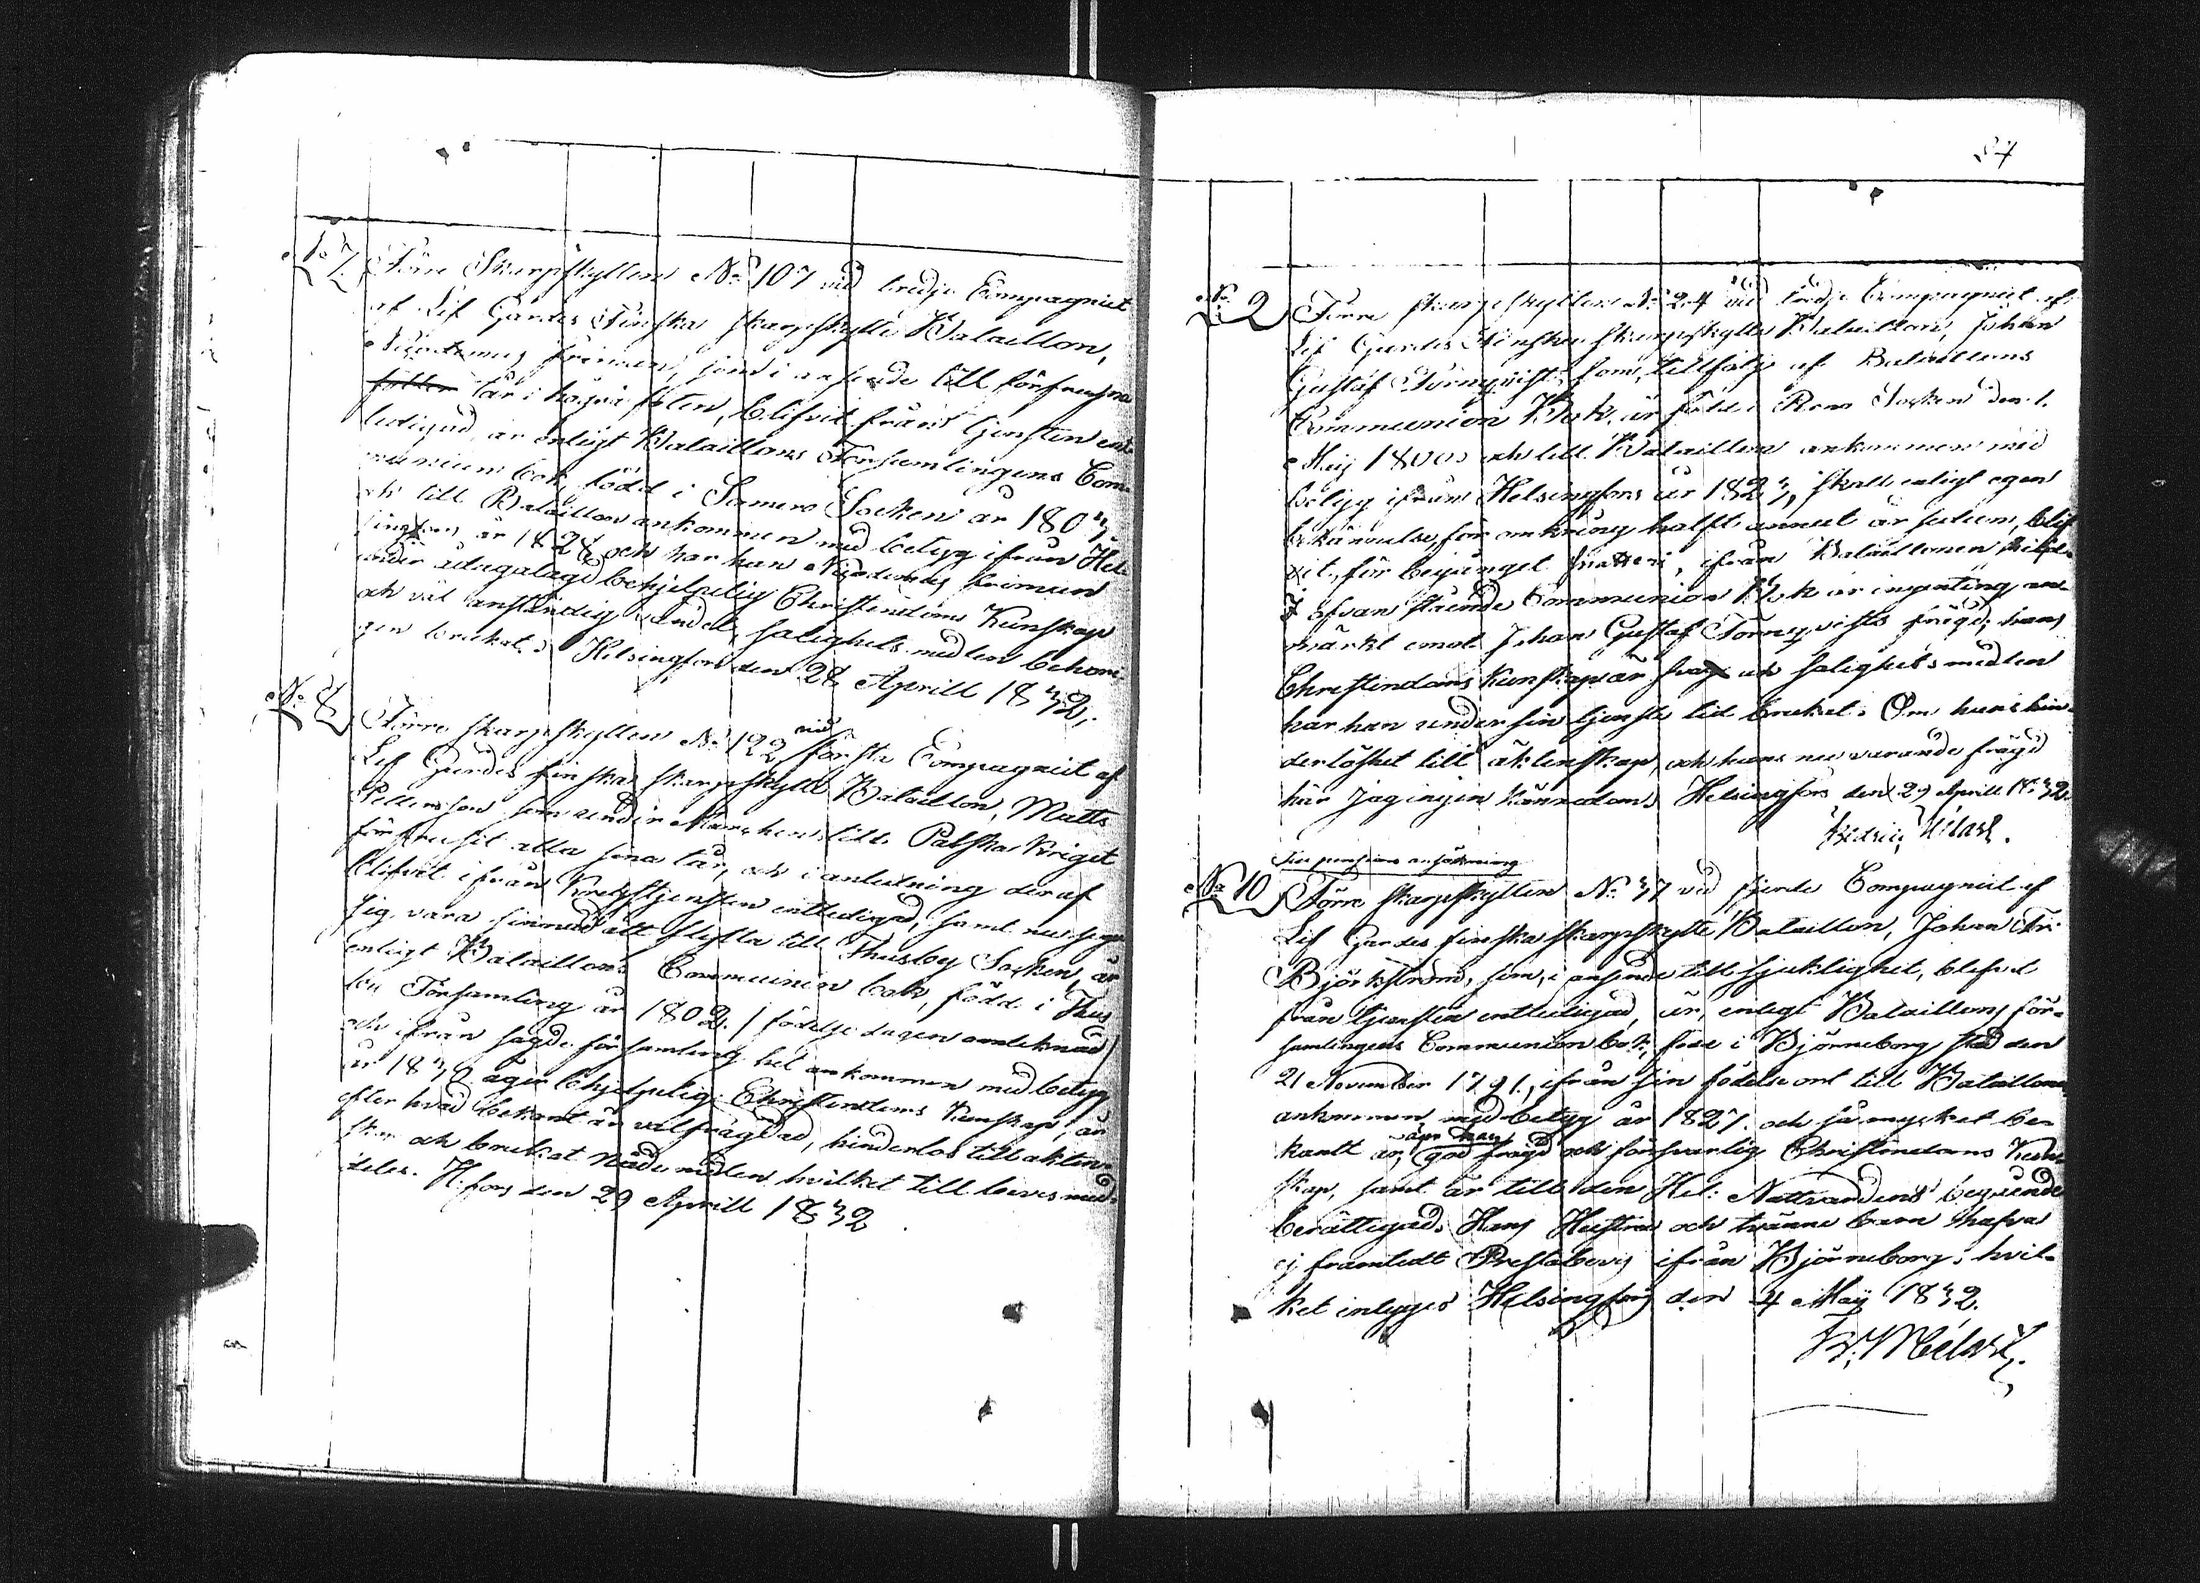 No 7. Förre Skarpskytten No 107 vid tredje Compagniet
af Lif Gardes Finska Skarpskytte Bataillon,
Nicodemus Friman, som i anseende till förfrusna
tår i högra foten, blifvit från tjensten ent-
ledigad, är enligt Bataillons Församlingens Com-
munion bok, född i Somero Socken år 1803,
och till Bataillon ankommen med betyg ifrån Hel-
singfors år 1828 och har han Nicodemus Friman
ådagalagd behjelpelig Christendoms Kunskap
och väl anständig vandel, salighets medlen behöri-
gen brukat. Helsingfors den 28 Aprill 1832.
No 8 Förre skarpskytten No 122 vid första Compagniet af
Lif Gardes finska skarpskytte Bataillon, Matts
Pettersson som under Marchen till Polska kriget
förfrusit alla sina tår, och i anledning deraf
blifvit ifrån Krigstjensten entledigad, samt nu säger
sig vara sinnad att flytta till Thusby Socken, är
enligt Bataillons Communion bok, född i Thus-
by Församling år 1802. / födelse dagen oanteknad /
och ifrån sagde församling hit ankommen med betyg
år 1830 äger behjelpelig Christendoms Kunskap, är
efter hvad bekant är välfrägdad, hinderlös till äkten-
skap och brukat Nåde medlen, hvilket till bevis med-
deles. H:fors den 29 Aprill 1832.
57
No 2 Förre skarpskytten No 24 vid tredje Compagniet af
Lif Gardes Finska Skarpskytte Bataillon, Johan
Gustaf Törnqvist, som, tillfölje af Bataillons
Communion Bok, är född i Socken den 1.
Maij 1800 och till Bataillon ankommen med
betyg ifrån Helsingfors år 1823, skall enligt egen
bekännelse, för omkring halft annat år sedan, blif-
vit, för begånget snatteri, ifrån Bataillonen skild.
I ofvan stående Communion Bok är ingenting an-
märkt emot Johan Gustaf Törnqvists frägd, hans
Christendoms kunskap är svag och salighets medlen
har han under sin tjenste tid brukat. Om hans hin-
derlöshet till äktenskap, och hans nu varande frägd
här jag ingen kännedom. Helsingfors den 29 Aprill 1832.
Fredric Mélart.
Till pensions ansökning
No 10 Förre skarpskytten No 37 vid fjerde Compagniet af
Lif Gardes finska skarpskytte Bataillon, Johan Fri:
Björkström, som, i anseende till sjuklighet, blifvit
från tjensten entledigad, är, enligt Bataillons för-
samlingens Communion bok, född i Björneborg stad den
21 November 1791, ifrån sin födelse ort till Bataillonen
ankommen med betyg år 1827. och så mycket be-
kant är, äger han god frägd och försvarlig Christendoms Kun-
skap, samt är till den Hel: Nattvardens begående
berättigad. Hans Hustru och tvänne barn hafva
ej framtedt Prestabevis ifrån Björneborg, hvil-
ket intygas Helsingfors den 4 Maij 1832.
Fr. Mélart.